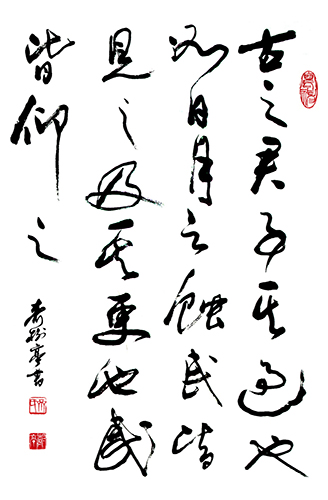 古之君子其过也
如日月之蚀民皆
见之及其更也民
皆仰之